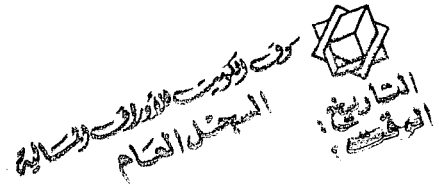 سوق الكويت للأوراق المالية
السجل العام
التاريخ:
الوقت: